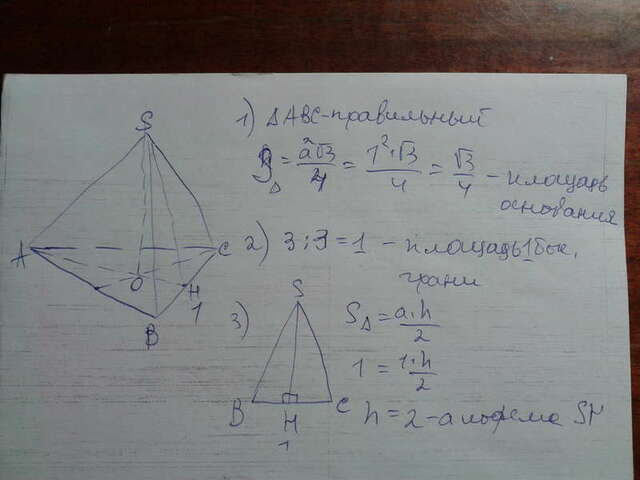 S
A
C
O
H
1
B
1) ΔABC-правильный
S_Δ = a²√3/4 = 1²·√3/4 = √3/4 - площадь
основания
2) 3:3=1 - площадь 1 бок.
грани
3)
S
B
H
C
1
S_Δ = a·h/2
1 = 1·h/2
h = 2 - апофема SH